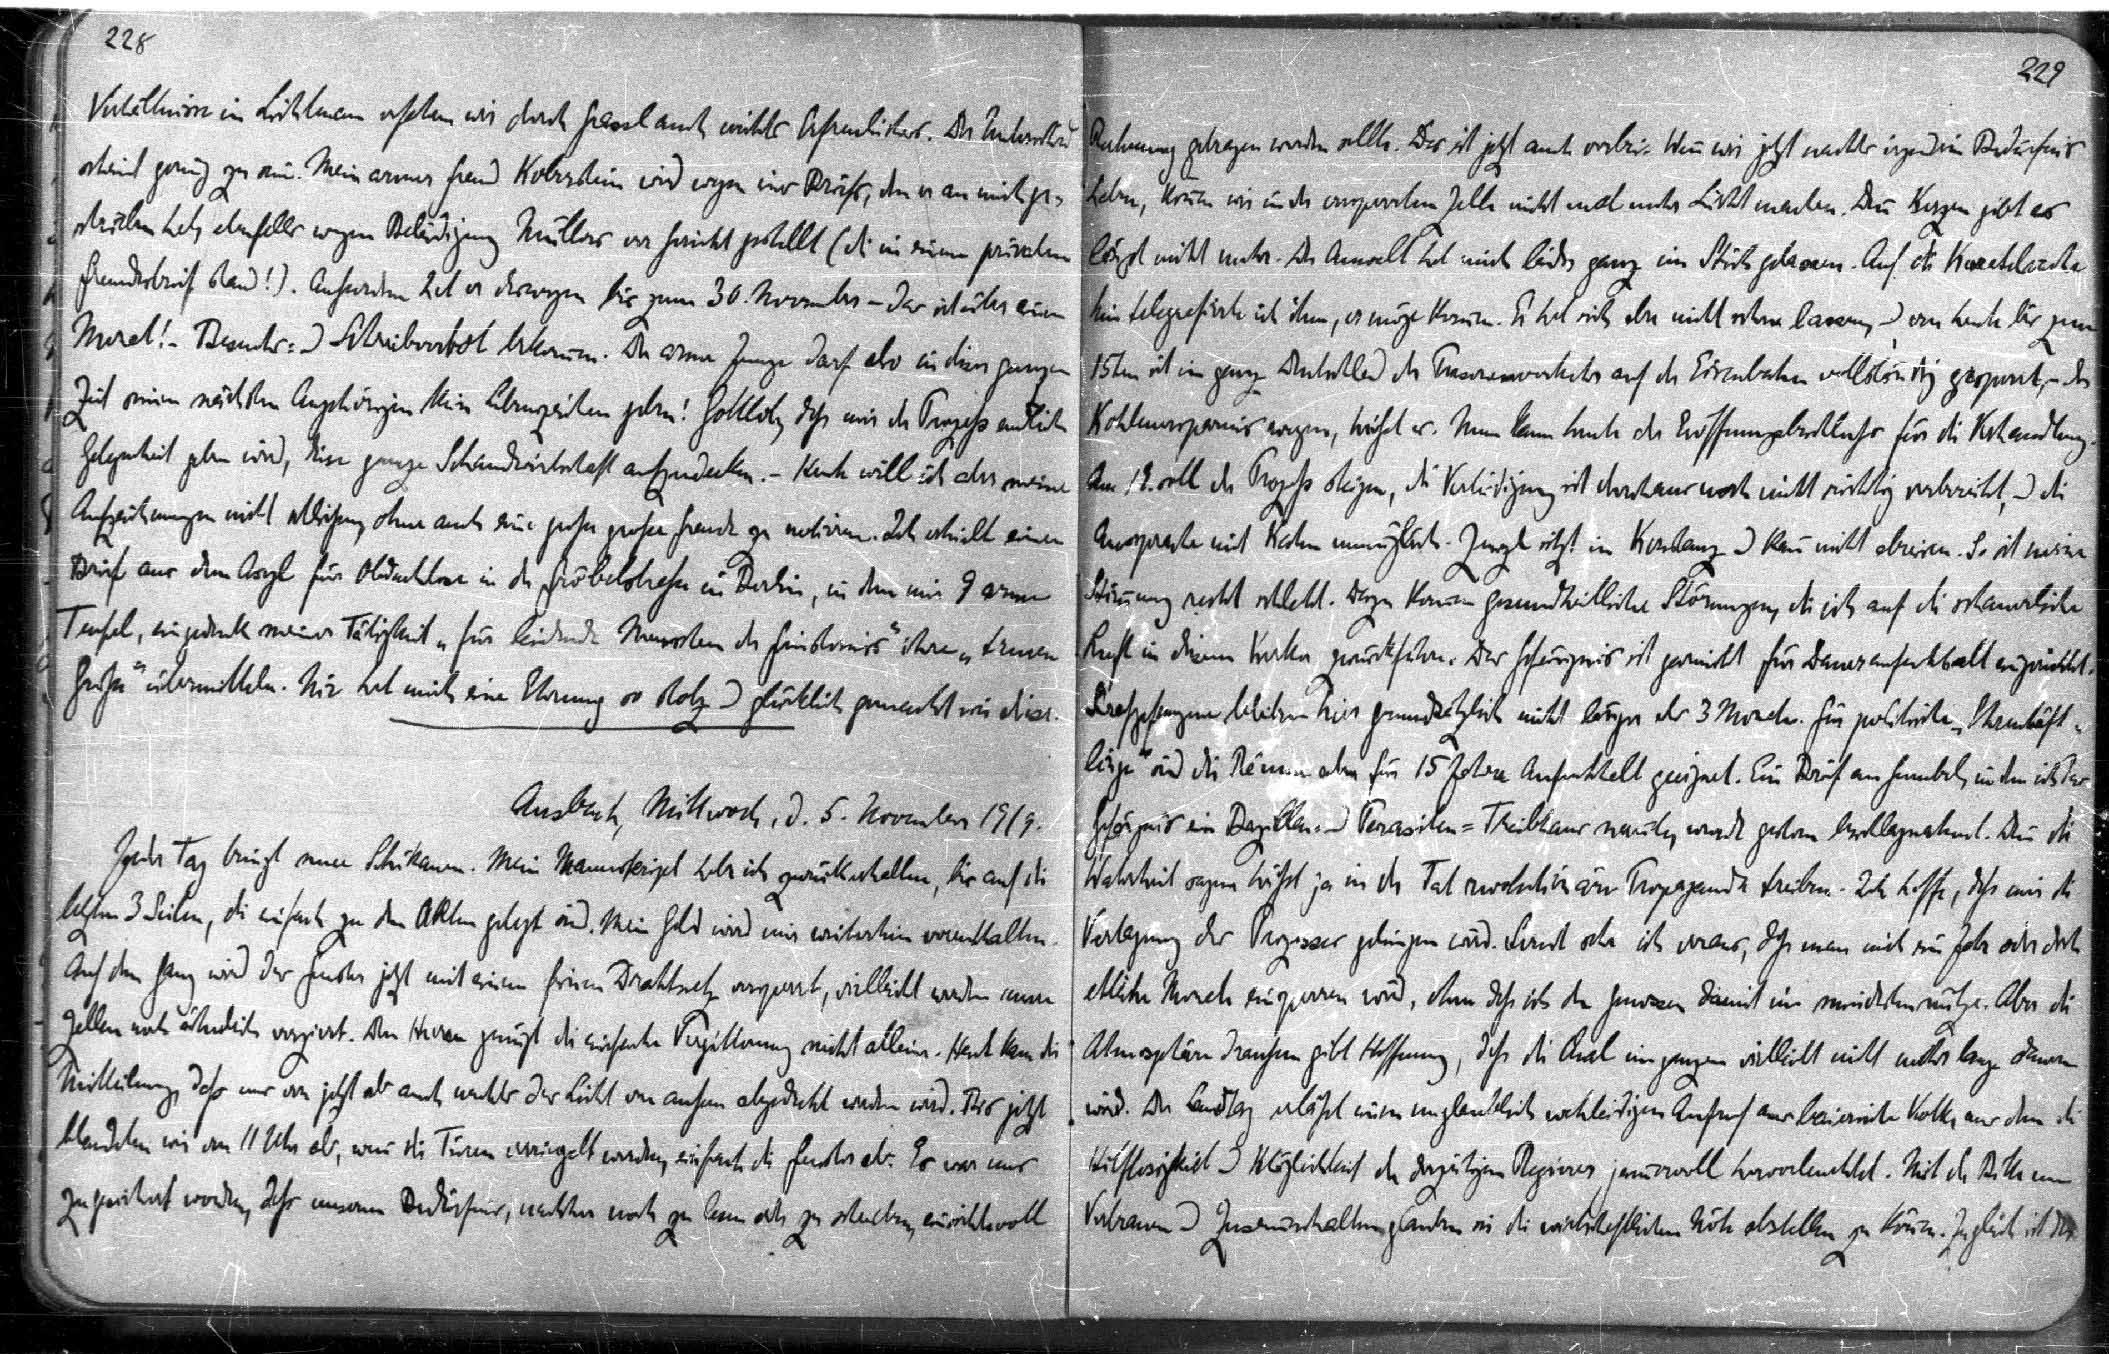 228
Verhältnisse in Lichtenau erfahren wir durch Gessl auch nichts Erfreuliches. Der Unterschied
scheint gering zu sein. Mein armer Freund Kobershein wird wegen eines Briefs, den er an mich ge-
schrieben hat, ebenfalls wegen Beleidigung Müllers vor Gericht gestellt (die in einem privaten
Freundesbrief stand!). Außerdem hat er deswegen bis zum 30. November – das ist über einen
Monat! – Besuchs- u Schreibverbot bekommen. Der arme Junge darf also in dieser ganzen
Zeit seinen nächsten Angehörigen kein Lebenszeichen geben! Gottlob, daß mir der Prozeß endlich
Gelegenheit geben wird, diese ganze Schandwirtschaft aufzudecken. – Heute will ich aber meine
Aufzeichnungen nicht schließen, ohne auch eine große große Freude zu notieren. Ich erhielt einen
Brief aus dem Asyl für Obdachlose in der Fröbelstraße in Berlin, in dem mir 9 arme
Teufel, eingedenk meiner Tätigkeit „für leidende Menschen der Finsternis“ ihre „treuen
Grüße“ übermitteln. Nie hat mich eine Ehrung so stolz u glücklich gemacht wie diese.
Ansbach, Mittwoch, d. 5. November 1919.
Jeder Tag bringt neue Schikanen. Mein Manuskript habe ich zurückerhalten, bis auf die
letzten 3 Seiten, die einfach zu den Akten gelegt sind. Mein Geld wird mir weiterhin vorenthalten.
Auf dem Gang wird das Fenster jetzt mit einem feinen Drahtnetz versperrt, vielleicht werden unsre
Zellen noch ähnlich verziert. Den Herren genügt die einfache Vergitterung nicht allein. Heut kam die
Mitteilung, daß uns von jetzt ab auch nachts das Licht von außen abgedreht werden wird. Bis jetzt
blendeten wir von 11 Uhr ab, wenn die Türen verriegelt werden, einfach die Fenster ab. Es war uns
zugesichert worden, daß unserm Bedürfnis, nachher noch zu lesen oder zu schreiben, einsichtsvoll
229
Rechnung getragen werden sollte. Das ist jetzt auch vorbei. Wenn wir jetzt nachts irgend ein Bedürfnis
haben, können wir in der versperrten Zelle nicht mal mehr Licht machen. Denn Kerzen gibt es
längst nicht mehr. Der Anwalt hat mich leider ganz im Stich gelassen. Auf die
hin telegrafierte ich ihm, er möge kommen. Er hat sich aber nicht sehen lassen, u von heute bis zum
15ten ist in ganz Deutschland der Personenverkehr auf der Eisenbahn vollständig gesperrt, – der
Kohlenersparnis wegen, heißt es. Nun kam heute der Eröffnungsbeschluß für die Verhandlung.
Am 18. soll der Prozeß steigen, die Verteidigung ist durchaus noch nicht richtig vorbereitet, u die
Aussprache mit unmöglich. Zenzl sitzt in Konstanz u kann nicht abreisen. So ist meine
Stimmung recht schlecht. Dazu kommen gesundheitliche Störungen, die ich auf die schauerliche
Luft in diesem Kerker zurückführe. Das Gefängnis ist garnicht für Daueraufenthalt eingerichtet.
Strafgefangene bleiben hier grundsätzlich nicht länger als 3 Monate. Für politische „Ehrenhäft-
linge“ sind die Räume aber für 15 Jahre Aufenthalt geeignet. Ein Brief an , in dem ich das
Gefängnis ein Bazillen- u Parasiten-Treibhaus nannte, wurde gestern beschlagnahmt. Denn die
Wahrheit sagen heißt ja in der Tat revolutionäre Propaganda treiben. Ich hoffe, daß mir die
Vertagung des Prozesses gelingen wird. Sonst sehe ich voraus, daß man mich ein Jahr oder doch
etliche Monate einsperren wird, ohne daß ich den Genossen damit im mindesten nütze. Aber die
Atmosphäre draußen gibt Hoffnung, daß die Qual im ganzen vielleicht nicht mehr lange dauern
wird. Der Landtag erläßt einen unglaublich wehleidigen Aufruf ans bairische Volk, aus dem die
Hilflosigkeit u Kläglichkeit der derzeitigen Regierer jammervoll hervorleuchtet. Mit der Bitte um
Vertrauen u Zusammenhalten glauben sie die wirtschaftlichen Nöte abstellen zu können. Zugleich ist das